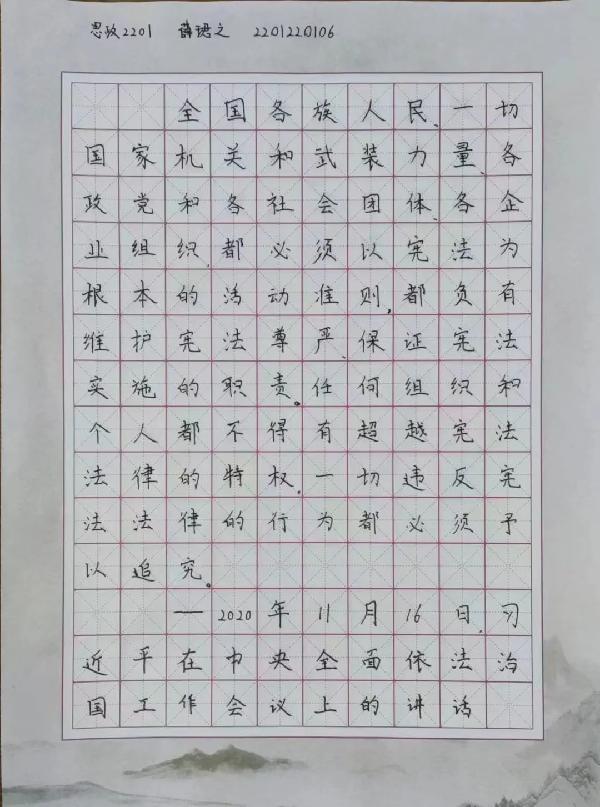 思政2201 薛珺之 2201220106
全国各族人民、一切
国家机关和武装力量、各
政党和各社会团体、各企
业组织,都必须以宪法为
根本的活动准则,都负有
维护宪法尊严、保证宪法
实施的职责。任何组织和
个人都不得有超越宪法
法律的特权,一切违反宪
法法律的行为都必须予
以追究。
——2020年11月16日,习
近平在中央全面依法治
国工作会议上的讲话